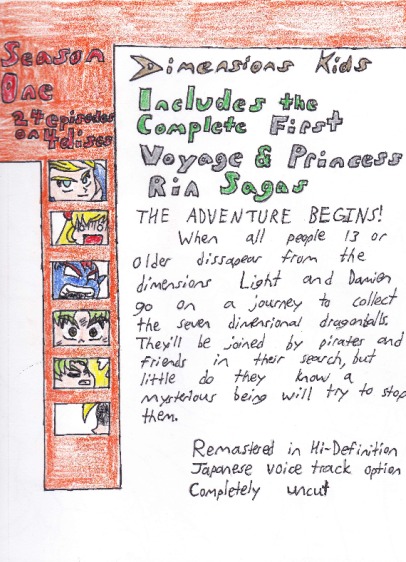 Season
One
24 episodes
on 4 discs
Dimensions Kids
Includes the
Complete First
Voyage & Princess
Rin Sagas
THE ADVENTURE BEGINS!
When all people 13 or
older dissapear from the
dimensions Light and Damien
go on a journey to collect
the seven dimensional dragonballs.
They'll be joined by pirates and
friends in their search, but
little do they know a
mysterious being will try to stop
them.
Remastered in Hi-Definition
Japanese voice track option
Completely uncut